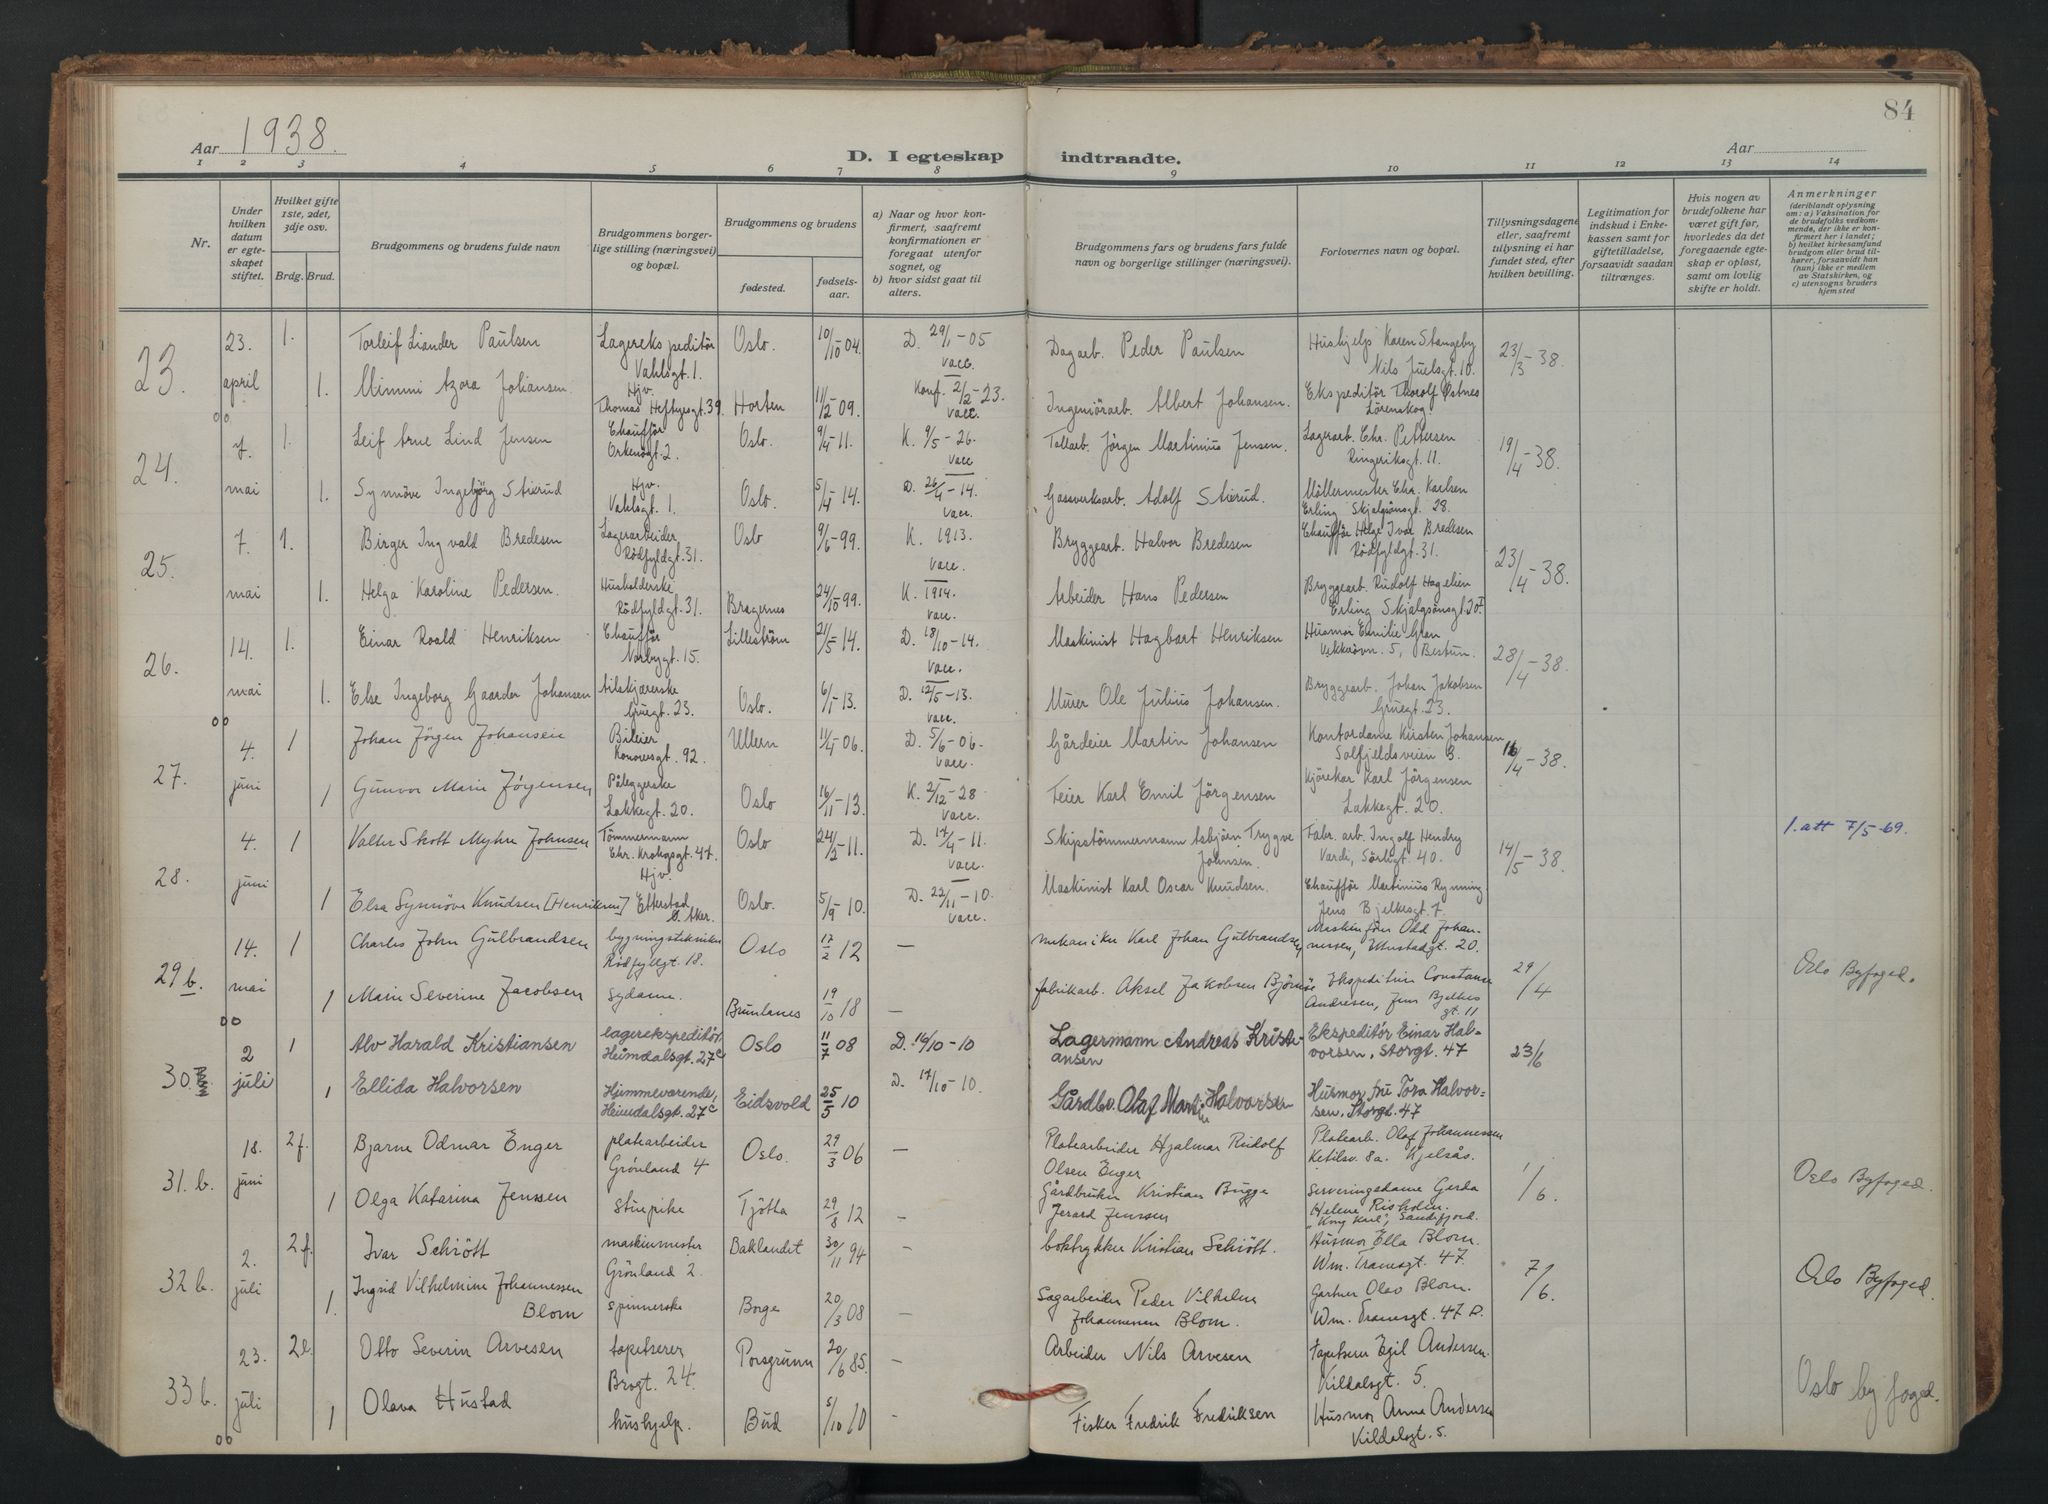 84
Aar 1938.
D. I egteskap indtraadte.
Aar
1 2 3 4 5 6 7 8 9 10 11 12 13 14
Nr.
Under hvilken datum er egteskapet stiftet.
Hvilket gifte 1ste, 2det, 3dje osv.
Brdg. Brud.
Brudgommens og brudens fulde navn
Brudgommens borgerlige stilling (næringsvei) og bopæl.
Brudgommens og brudens
fødested.
fødselsaar.
a) Naar og hvor konfirmert, saafremt konfirmationen er foregaaet utenfor sognet, og
b) hvor sidst gaat til alters.
Brudgommens fars og brudens fars fulde navn og borgerlige stillinger (næringsvei).
Forlovernes navn og bopæl.
Tillysningsdagene eller, saafremt tillysning ei har fundet sted, efter hvilken bevilling.
Legitimation for indskud i Enkekassen samt for giftetilladelse, forsaavidt saadan tiltrænges.
Hvis nogen av brudefolkene har været gift før, hvorledes da det foregaaende egteskap er opløst, samt om lovlig skifte er holdt.
Anmerkninger
(deriblandt oplysning om: a) Vaksination for de brudefolks vedkommende, der ikke er konfirmert her i landet; b) hvilket kirkesamfund brudgom eller brud tilhører, forsaavidt han (hun) ikke er medlem av Statskirken, og c) utensogns bruders hjemsted
23. 23. april 1. Torleif Liander Paulsen Lagerekspeditör Vahlsgt. 1. Oslo. 10/10 04. D. 29/1-05 vacc. Dagarb. Peder Paulsen Hushjelp Karen Stangeby Nils Juelsgt. 10. 23/3-38.
1. Mimmi Azora Johansen. Hjv. Thomas Heftyesgt. 39. Horten 11/2-09. Konf. 2/2-23. vacc. Ingeniörarb. Albert Johansen. Ekspeditör Thorolf Østnes Lörenskog.
24. 7. mai 1. Leif Arne Lind Jensen Chaufför Orknögt. 2. Oslo. 9/4-11. K. 9/5-26. vacc Tollarb. Jörgen Martinius Jensen. Lagerarb. Chr. Pettersen Ringeriksgt. 11. 19/4-38.
1. Synnöve Ingebjörg Stierud Hjv. Vahlsgt. 1 Oslo. 5/4-14. D. 26/4-14. vacc. Gassverksarb. Adolf Stierud. Möllermester Chr. Karlsen Erling Skjalgsönsgt. 28.
25. 7. mai 1. Birger Ingvald Bredesen Lagerarbeider Rödfyldgt. 31. Oslo 9/6-99. K. 1913. vacc. Bryggearb. Halvor Bredesen Chaufför Helge Ivar Bredesen Rödfyldgt. 31. 23/4-38.
1. Helga Karoline Pedersen. Husholderske Rödfyldgt. 31. Bragernes 24/10 99. K. 1914. vacc. Arbeider Hans Pedersen Bryggearb. Rudolf Hagelien Erling Skjalgsönsgt. 20 I
26. 14. mai 1. Einar Roald Henriksen Chaufför Norbygt. 15. Lilleström 21/5-14. D. 18/10-14. vacc. Maskinist Hagbart Henriksen Husmor Emilie Gran Vekkerövn. 5, Bestun. 28/4-38.
1. Else Ingeborg Gaarder Johansen tilskjærerske Gruegt. 23. Oslo. 6/1-13. D. 12/5-13. vacc. Murer Ole Julius Johansen. Bryggearb. Johan Jakobsen Gruegt. 23.
27. 4. juni 1 Johan Jörgen Johansen Bileier Konowsgt. 92. Ullern 11/4-06. D. 5/6-06. vacc. Gårdeier Martin Johansen Kontordame Kirsten Johansen Solfjeldsveien 3. 16/4-38.
1 Gunvor Marie Jørgensen Påleggerske Lakkegt. 20. Oslo 16/11-13 K. 2/12-28 vacc. Feier Karl Emil Jörgensen kjörekar Karl Jörgensen Lakkegt. 20.
28. 4. juni 1 Valter Skott Myhre Johnsen Tömmermann Chr. Krohgsgt. 47. Oslo 24/2-11. D. 17/4-11. vacc. Skipstömmermann Asbjörn Trygve Johnsen. Fabr. arb. Ingolf Hendry Varde, Sörligt. 40. 14/5-38. 1. att 7/5-69.
1 Elsa Synnöve Knudsen [Henriksen] Hjv. Etterstad Ö. Aker. Oslo. 5/9-10. D. 22/11-10. vacc. Maskinist Karl Oscar Knudsen. Chauffør Martinius Rynning Jens Bjelkesgt. 7.
29 b. 14. mai 1 Charles John Gulbrandsen bygningstekniker Rödfyllgt. 18. Oslo 17/2 12 — mekaniker Karl Johan Gulbrandsen Maskinförer Olof Johannessen, Mustadgt. 20. 29/4 Oslo Byfoged.
1 Marie Severine Jacobsen sydame. Brunlanes 19/10 18 — fabrikarb. Aksel Jakobsen Björnöe Ekspeditrise Constance Andresen, Jens Bjelkes gt. 11
30. 2 juli 1 Alv Harald Kristiansen lagerekspeditör Heimdalsgt. 27c Oslo 11/7 08 D. 16/10-10 Lagermann Andreas Kristiansen Ekspeditör Einar Halvorsen, Storgt. 47 23/6
1 Ellida Halvorsen Hjemmeværende, Heimdalsgt. 27c Eidsvold 25/5 10 D. 17/10-10. Gårdbr. Olaf Martin Halvorsen Husmor fru Tora Halvorsen, Storgt. 47
31. b. 18. juni 2 f. Bjarne Odmar Enger platearbeider Grönland 4 Oslo. 29/3 06 — Platearbeider Hjalmar Rudolf Olsen Enger Platearb. Olaf Johannessen Ketilsv. 8a. Kjelsås. 1/6. Oslo Byfoged.
1 Olga Katarina Jenssen stuepike Tjötta 29/8 12 — Gårdbruker Kristian Bugge Jerard Jenssen Serveringsdame Gerda Helene Risholm. "Kong Karl", Sandefjord.
32 b. 2. juli 2 f. Ivar Schiött maskinmester Grönland 2. Baklandet 30/11 94 — boktrykker Kristian Schiött. Husmor Ella Blom. Wm. Tranesgt. 47. 7/6. Oslo Byfoged.
1. Ingrid Vilhelmine Johannessen Blom spinnerske Borge 20/3 08 — Sagarbeider Peder Vilhelm Johannesen Blom. Gartner Olav Blom. Wm. Tranesgt. 47 D.
33 b. 23. juli 2 e. Otto Severin Arvesen tapetserer Brogt. 24. Porsgrunn 20/6 85. — Arbeider Nils Arvesen tapetserer Egil Andersen. Kildalsgt. 5. Oslo byfoged.
1 Olava Hustad hushjelp. Bud 5/10 10 — Fisker Fredrik Fredriksen Husmor Anna Andersen Kildalsgt. 5.